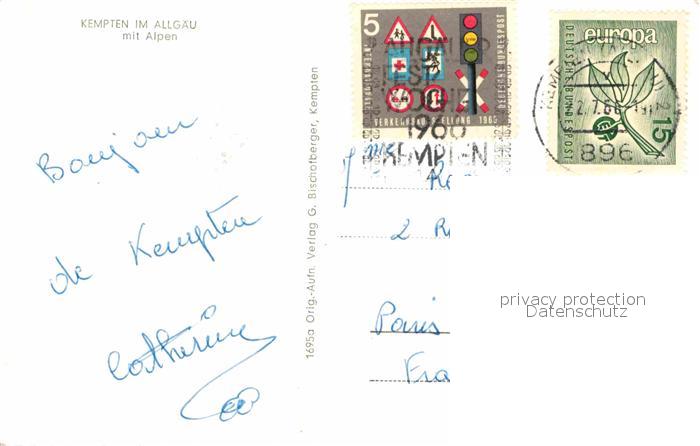 KEMPTEN IM ALLGÄU
mit Alpen
Bonjour
de Kempten
Catherine
1695a Orig.-Aufn. Verlag G. Bischofberger, Kempten
5
DEUTSCHE BUNDESPOST
INTERNATIONALE
VERKEHRSAUSSTELLUNG 1965
1966
KEMPTEN
europa
DEUTSCHE BUNDESPOST
15
896
Mme
2 R
Paris
Fra
privacy protection
Datenschutz